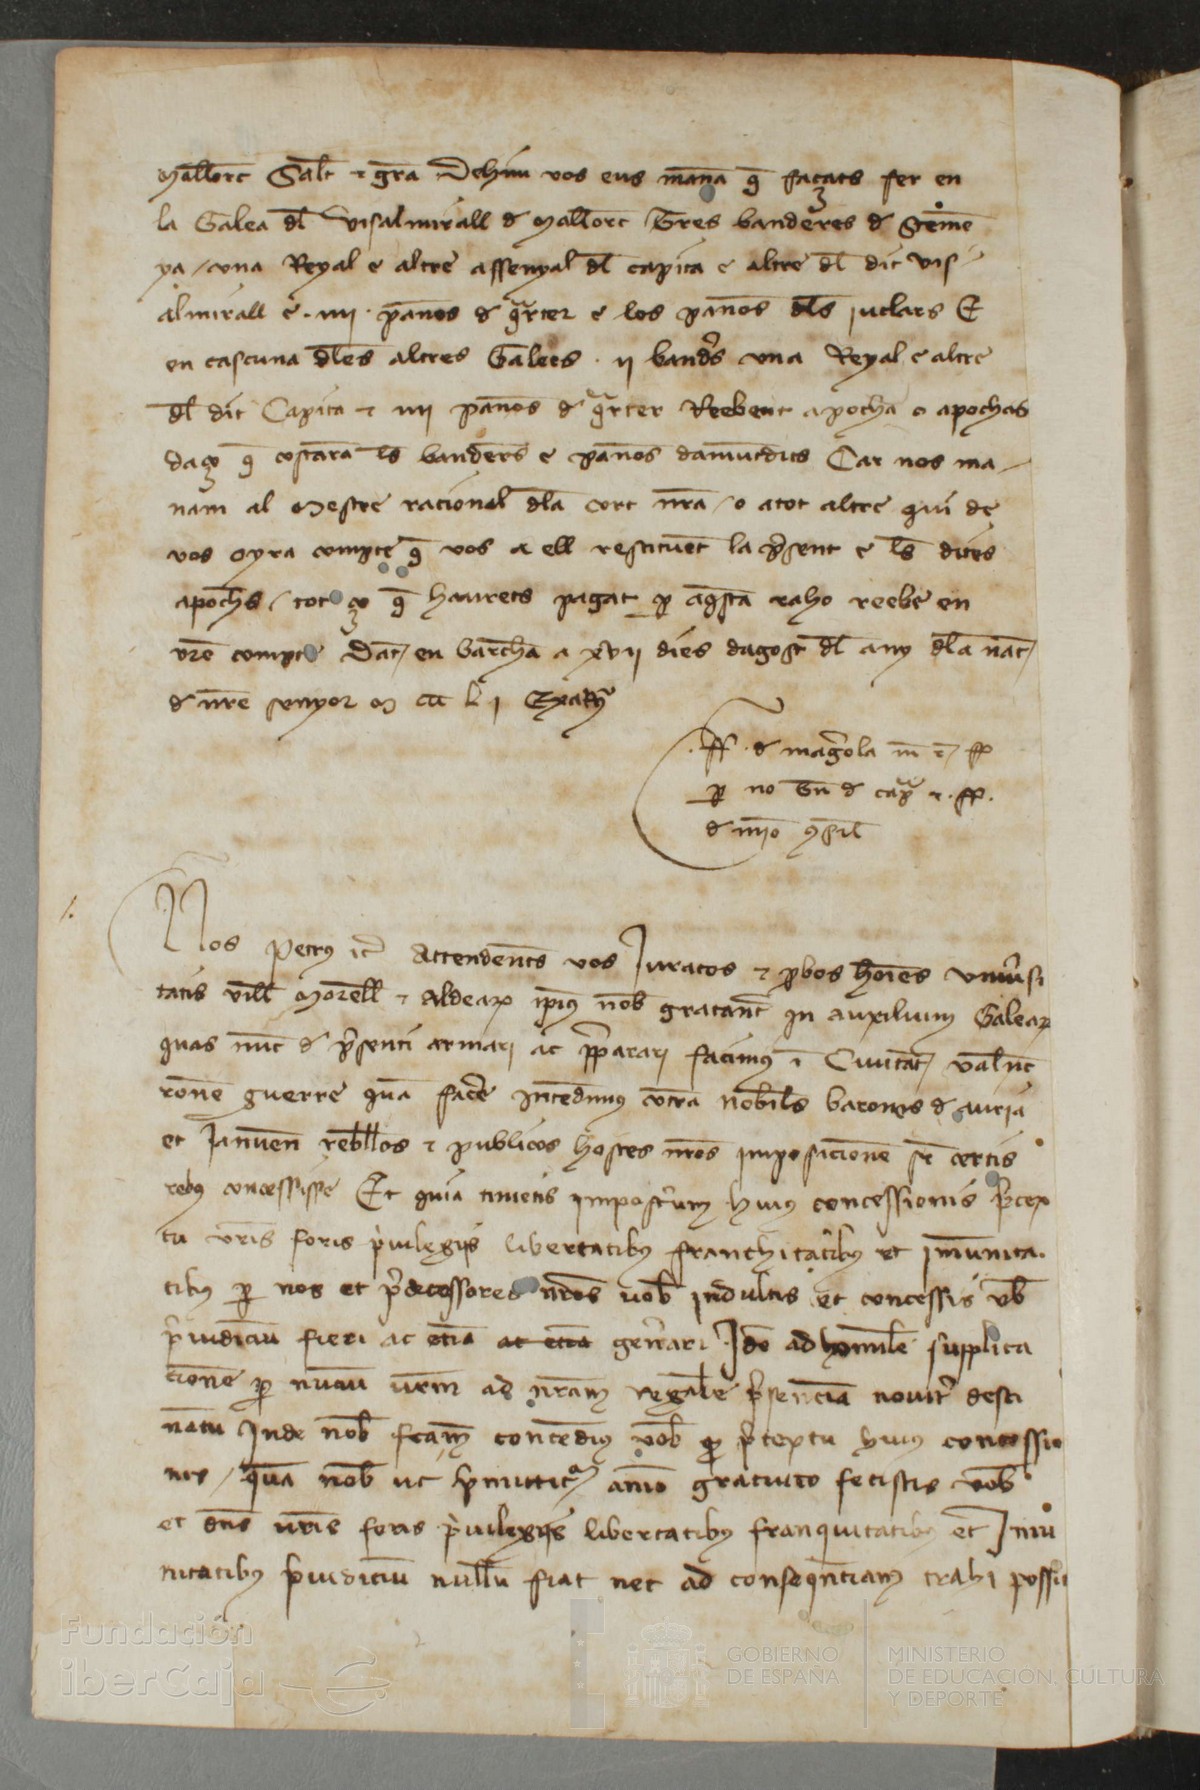 Mallorc Salt e gra Dehim vos eus mana q façats fer en
la Galea dl Visalmirall d Mallorc Tres banderes d Stame
ya / vna Reyal e altre assenyal dl capita e altre dl dit vis
almirall e . IIII . panos d qrter e los panos dls juclars E
en cascuna dles altres Galees . II bands vna Reyal e altre
dl dit Capita e IIII panos d qrter Reebent apocha o apochas
daço q costara ls banders e panos damutdits Car nos ma
nam al Mestre racional dla cort nra / o atot altre qui de
vos oyra compte q vos a ell restituet la psent e ls dites
apochs / tot ço q haurets pagat p aqsta raho reebe en
vre compte Dat en Barcha a XVII dies dagost dl any dla nat
d nre senyor M CCC L I
ff . d magrola
p no d cap
d consil
Nos Petrus etc Attendents vos Juratos e pbos hoies vniusi
tatis ville Morelle e Aldear ipius nob gratant in auxilium Galear
quas nuc d psenti armari ac pparari facimus i Ciuitat Valnc
rone guerre qua face intedimus contra nobiles barones d Auria
et Januen rebelles e publicos hostes nros imposicione sr certis
rebus concessisse Et quia timetis impostrum huius concessionis pretex
tu vris foris priuilegiis libertatibus franchitatibus et imunita
tibus p nos et predecessores nros vob indultis et concessis vob
preiudiciu fieri ac etia ac etia generari Ideo ad humile supplica
cione p nuciu vrm ad nram regale presencia nouiter desti
natu Inde nob fcam concedimus vob q pretextu huius concessio
nis / qua nob ut pmittitr aio gratuito fecistis vob
et dns vris foris priuilegiis libertatibus franquitatibus et Imu
nitatibus preiudiciu nullu fiat nec ad consequenciam trahi possit
Fundación
iberCaja
GOBIERNO
DE ESPAÑA
MINISTERIO
DE EDUCACIÓN, CULTURA
Y DEPORTE